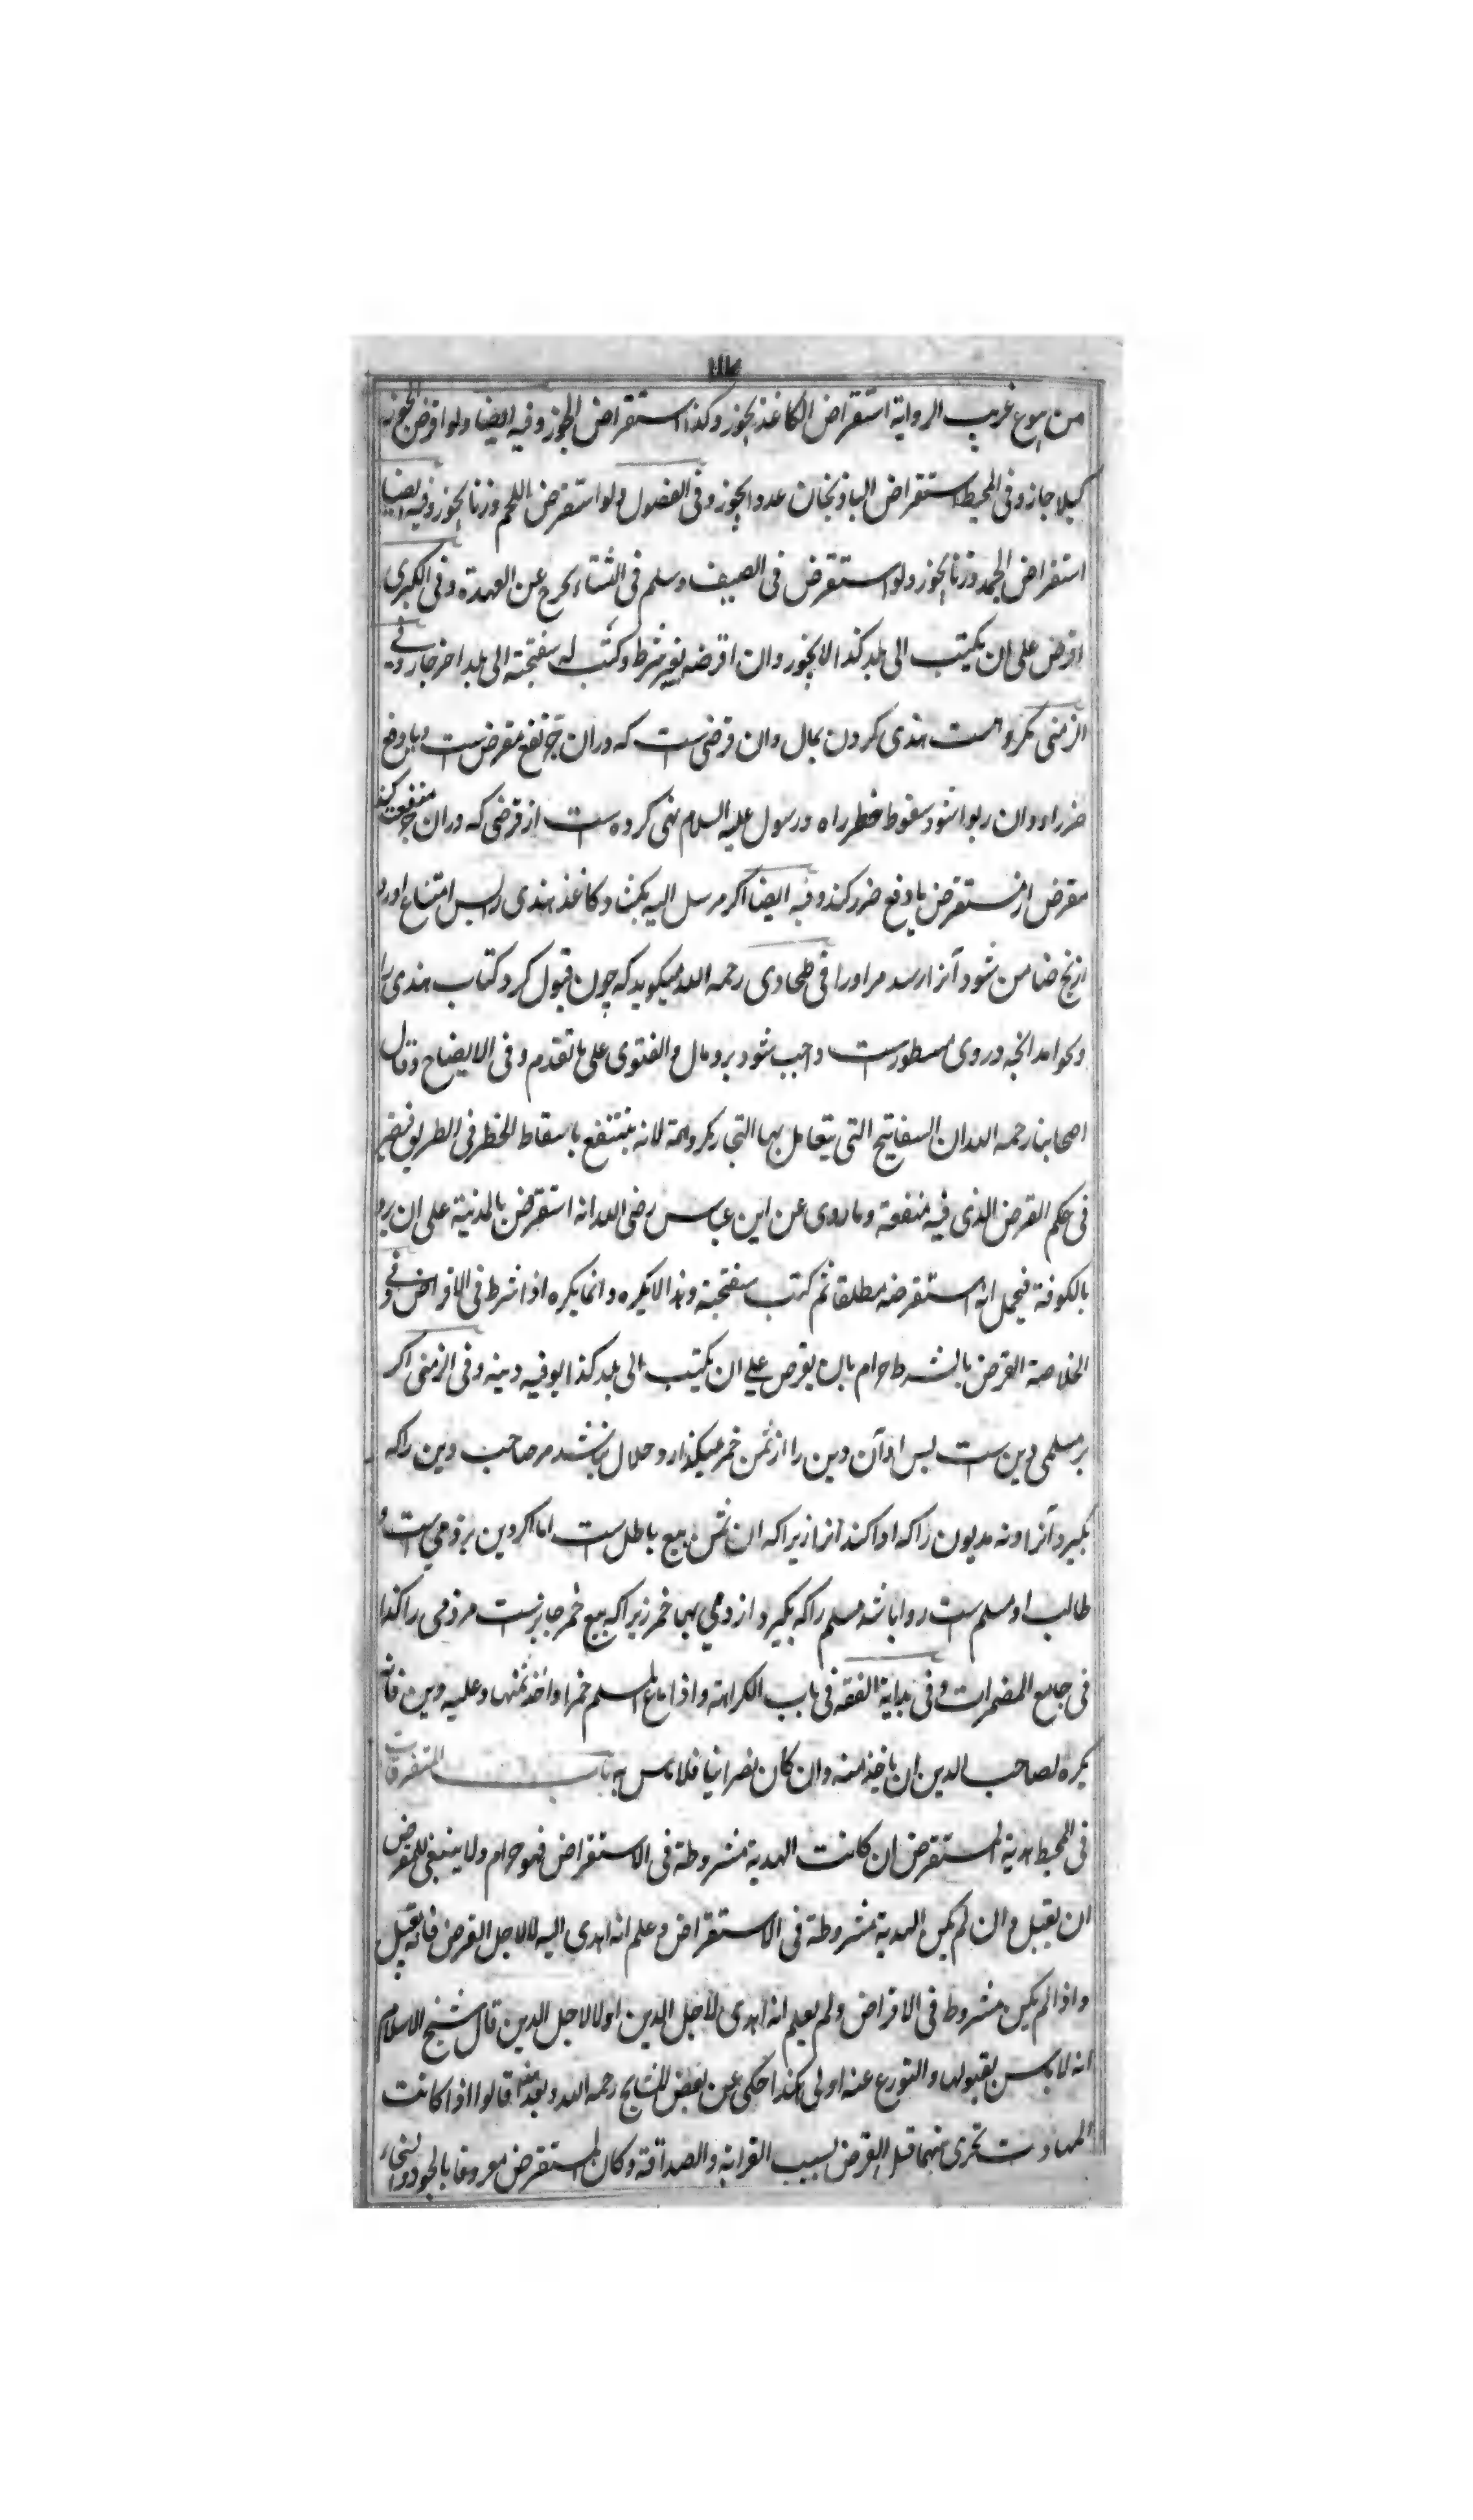 من بیوع غریب الروایة استقراض الکاغذ یجوز وکذا استقراض الجوز وفیه ایضا ولو اقرض الجوز
کیلا جاز وفی المحیط استقراض الباذنجان عددا یجوز وفی الفصول ولو استقرض اللحم وزنا یجوز وفیه ایضا
استقراض الجمد وزنا یجوز ولو استقرض فی الصیف وسلم فی الشتاء یخرج عن العهدة وفی الکبری
اقرض علی ان یکتب الی بلد کذا لا یجوز وان اقرضه بغیر شرط وکتب له سفتجة الی بلد اخر جاز وفی
الزمنی مکروهست هندی کردن بمال وان قرضی ست که دران جر نفع مقرض ست و یا دفع
ضرر او وان ربوا شود سقوط خطر راه ورسول علیه السلام نهی کرده ست از قرضی که دران جر منفعت کند
مقرض از مستقرض یا دفع ضرر کند وفیه ایضا اکر مرسل الیه بکشاد کاغذ هندی را پس امتناع اورد
از نخ ضامن شود آنرا رسد مر اورا فی طحاوی رحمه الله میکوید که چون قبول کرد کتاب هندی را
وبخواند انچه دروی مسطورست واجب شود برو مال والفتوی علی ما تقدم وفی الایضاح وقال
اصحابنا رحمه الله ان السفاتیج التی یتعامل بها التجار مکروهة لانه ینتفع باسقاط الخطر فی الطریق فیصیر
فی حکم القرض الذی فیه منفعة وما روی عن ابن عباس رضی الله انه استقرض بالمدینة علی ان یرد
بالکوفة فیحمل انه استقرضه مطلقا ثم کتب سفتجة وهذا لا یکره وانما یکره اذا شرط فی الاقراض وفی
الخلاصة القرض بالشرط حرام بان یقرض علی ان یکتب الی بلد کذا یوفیه دینه وفی الزمنی اکر
بر مسلمی دین ست پس او آن دین را از ثمن خمر میکذارد حلال نباشد مر صاحب دین را که
بکیرد آنرا ونه مدیون را که ادا کند آنرا زیرا که ان ثمن بیع باطل ست اما اکر دین بر ذمی ست و
طالب او مسلم ست روا باشد مسلم را که بکیرد از ذمی بهاء خمر زیرا که بیع خمر جایزست مر ذمی را کذا
فی جامع المضمرات وفی بدایة الفقه فی باب الکراهة واذا باع المسلم خمرا واخذ ثمنها وعلیه دین فانه
یکره لصاحب الدین ان یاخذ منه وان کان نصرانیا فلا باس به باب المتفرقات
فی المحیط هدیة المستقرض ان کانت الهدیة مشروطة فی الاستقراض فهو حرام ولا ینبغی للمقرض
ان یقبل وان لم یکن الهدیة مشروطة فی الاستقراض وعلم انه اهدی الیه لا لاجل القرض فانه یقبل
واذا لم یکن مشروط فی الاقراض ولم یعلم انه اهدی لاجل الدین او لا لاجل الدین قال شیخ الاسلام
انه لا باس بقبولها والتورع عنه اولی هکذا حکی عن بعض المشایخ رحمه الله وبعضهم قالوا اذا کانت
المهادات تجری بینهما قبل القرض بسبب القرابة والصداقة وکان المستقرض معروفا بالجود والسخاء